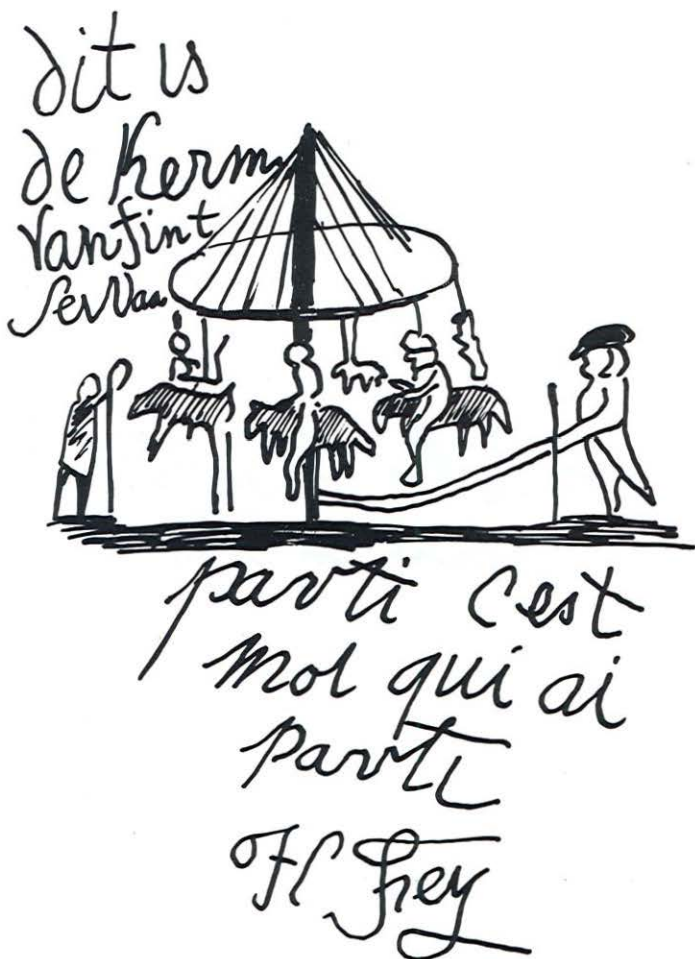 dit is
de Kerm
van sint
Servaa
parti c'est
moi qui ai
parti
H Frey